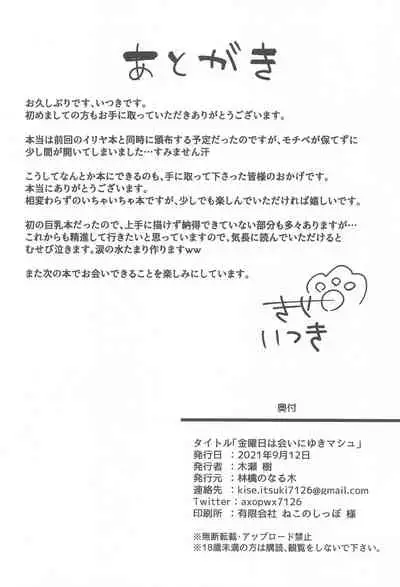 あとがき
お久しぶりです、いつきです。
初めましての方もお手に取っていただきありがとうございます。
本当は前回のイリヤ本と同時に頒布する予定だったのですが、モチベが保てずに
少し間が開いてしまいました…すみません汗
こうしてなんとか本にできるのも、手に取って下さった皆様のおかげです。
本当にありがとうございます。
相変わらずのいちゃいちゃ本ですが、少しでも楽しんでいただければ嬉しいです。
初の巨乳本だったので、上手に描けず納得できていない部分も多々ありますが…
これからも精進して行きたいと思っていますので、気長に読んでいただけると
むせび泣きます。涙の水たまり作りますww
また次の本でお会いできることを楽しみにしています。
いつき
奥付
タイトル「金曜日は会いにゆきマシュ」
発行日 : 2021年9月12日
発行者 : 木瀬 樹
発行元 : 林檎のなる木
連絡先 : kise.itsuki7126@gmail.com
Twitter : axopwx7126
印刷所 : 有限会社 ねこのしっぽ 様
※無断転載・アップロード禁止
※18歳未満の方は購読、観覧をしないで下さい。